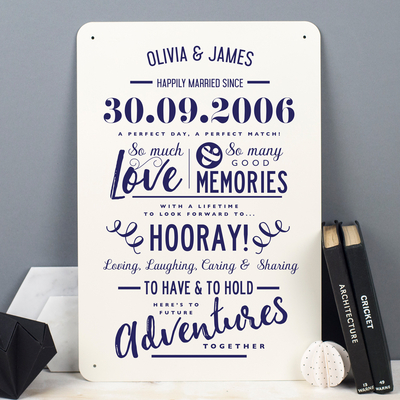 OLIVIA & JAMES
HAPPILY MARRIED SINCE
30.09.2006
A PERFECT DAY, A PERFECT MATCH!
So much
Love
So many
GOOD
MEMORIES
WITH A LIFETIME
TO LOOK FORWARD TO...
HOORAY!
Loving, Laughing, Caring & Sharing
TO HAVE & TO HOLD
HERE'S TO
FUTURE
Adventures
TOGETHER
ARCHITECTURE
CRICKET